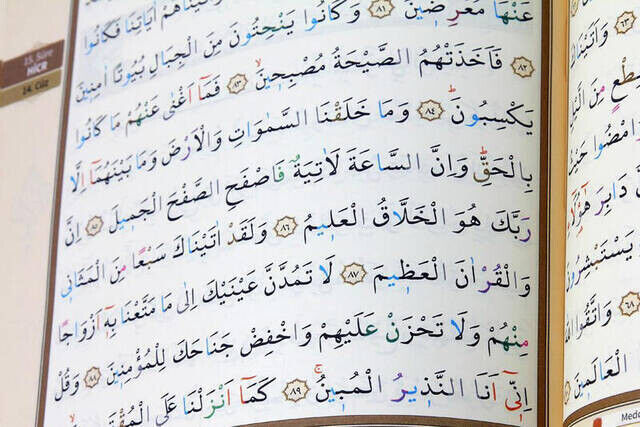 15. Sûre
HİCR
14. Cüz
وَاٰتَيْنَاهُمْ اٰيَاتِنَا فَكَانُوا
عَنْهَا مُعْرِضٖينَۙ ﴿٨١﴾ وَكَانُوا يَنْحِتُونَ مِنَ الْجِبَالِ بُيُوتًا اٰمِنٖينَ
﴿٨٢﴾ فَاَخَذَتْهُمُ الصَّيْحَةُ مُصْبِحٖينَۙ ﴿٨٣﴾ فَمَٓا اَغْنٰى عَنْهُمْ مَا كَانُوا
يَكْسِبُونَؕ ﴿٨٤﴾ وَمَا خَلَقْنَا السَّمٰوَاتِ وَالْاَرْضَ وَمَا بَيْنَهُمَٓا اِلَّا
بِالْحَقِّؕ وَاِنَّ السَّاعَةَ لَاٰتِيَةٌ فَاصْفَحِ الصَّفْحَ الْجَمٖيلَ ﴿٨٥﴾ اِنَّ
رَبَّكَ هُوَ الْخَلَّاقُ الْعَلٖيمُ ﴿٨٦﴾ وَلَقَدْ اٰتَيْنَاكَ سَبْعًا مِنَ الْمَثَانٖى
وَالْقُرْاٰنَ الْعَظٖيمَ ﴿٨٧﴾ لَا تَمُدَّنَّ عَيْنَيْكَ اِلٰى مَا مَتَّعْنَا بِهٖٓ اَزْوَاجًا
مِنْهُمْ وَلَا تَحْزَنْ عَلَيْهِمْ وَاخْفِضْ جَنَاحَكَ لِلْمُؤْمِنٖينَ ﴿٨٨﴾ وَقُلْ
اِنّٖٓى اَنَا النَّذٖيرُ الْمُبٖينُۚ ﴿٨٩﴾ كَمَٓا اَنْزَلْنَا عَلَى
﴿٦٣﴾ وَاَتَيْنَاكَ
مِنَ الَّيْلِ
وَامْضُوا حَيْثُ
دَابِرَ هٰٓؤُ۬لَٓاءِ
يَسْتَبْشِرُونَ
﴿٦٨﴾ وَاتَّقُوا
الْعَالَمٖينَ